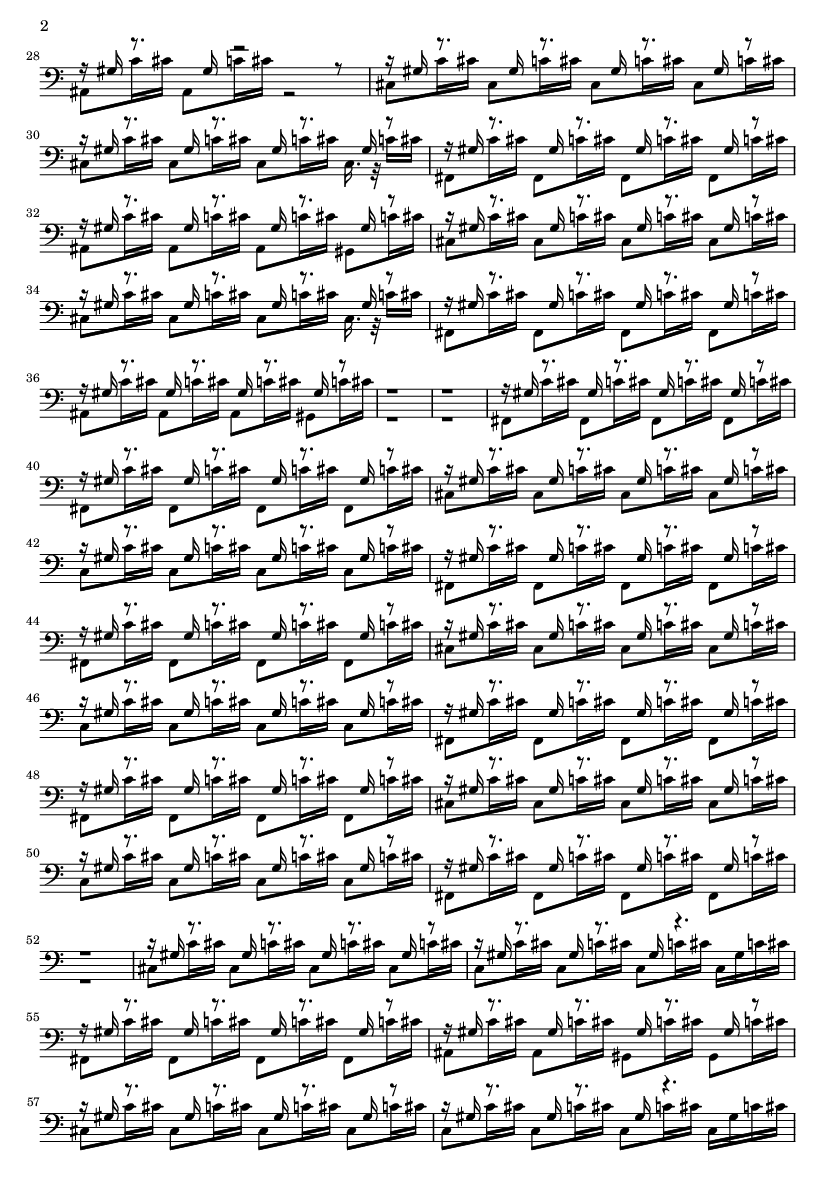 2
28
30
32
34
36
40
42
44
46
48
50
52
55
57